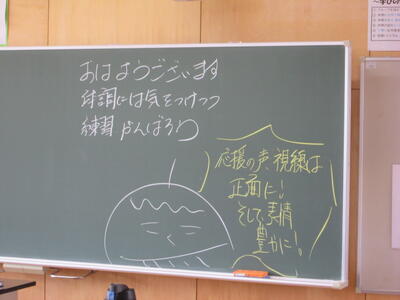 おはようございます
体調には気をつけつつ
練習がんばろう
応援の声、視線は
正面に!
そして、表情
豊かに!